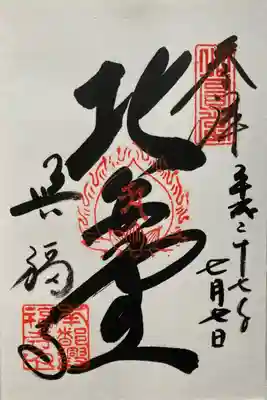 奉拝
平成二十七年
七月七日
北円堂
興福寺